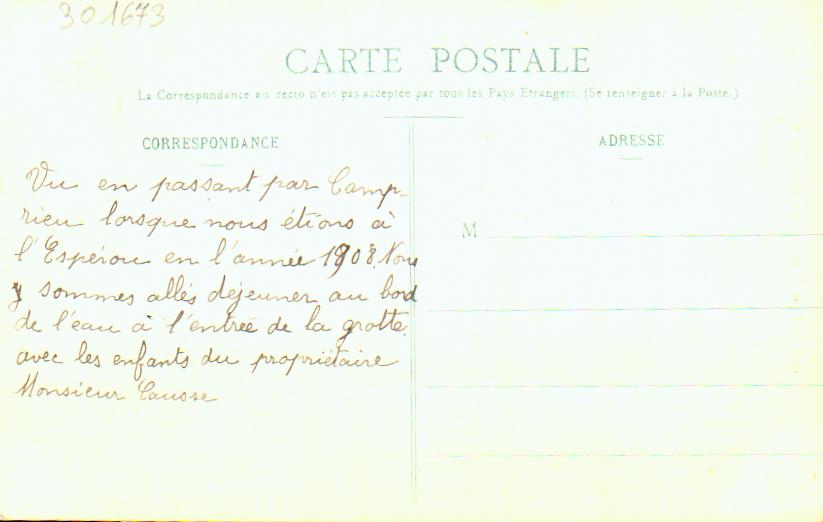 301673
CARTE POSTALE
La Correspondance au recto n'est pas acceptée par tous les Pays Etrangers. (Se renseigner à la Poste.)
CORRESPONDANCE
Vu en passant par Camp-
rieu lorsque nous étions à
l'Espérou en l'année 1908. Nous
y sommes allés déjeuner au bord
de l'eau à l'entrée de la grotte
avec les enfants du propriétaire
Monsieur Causse
ADRESSE
M